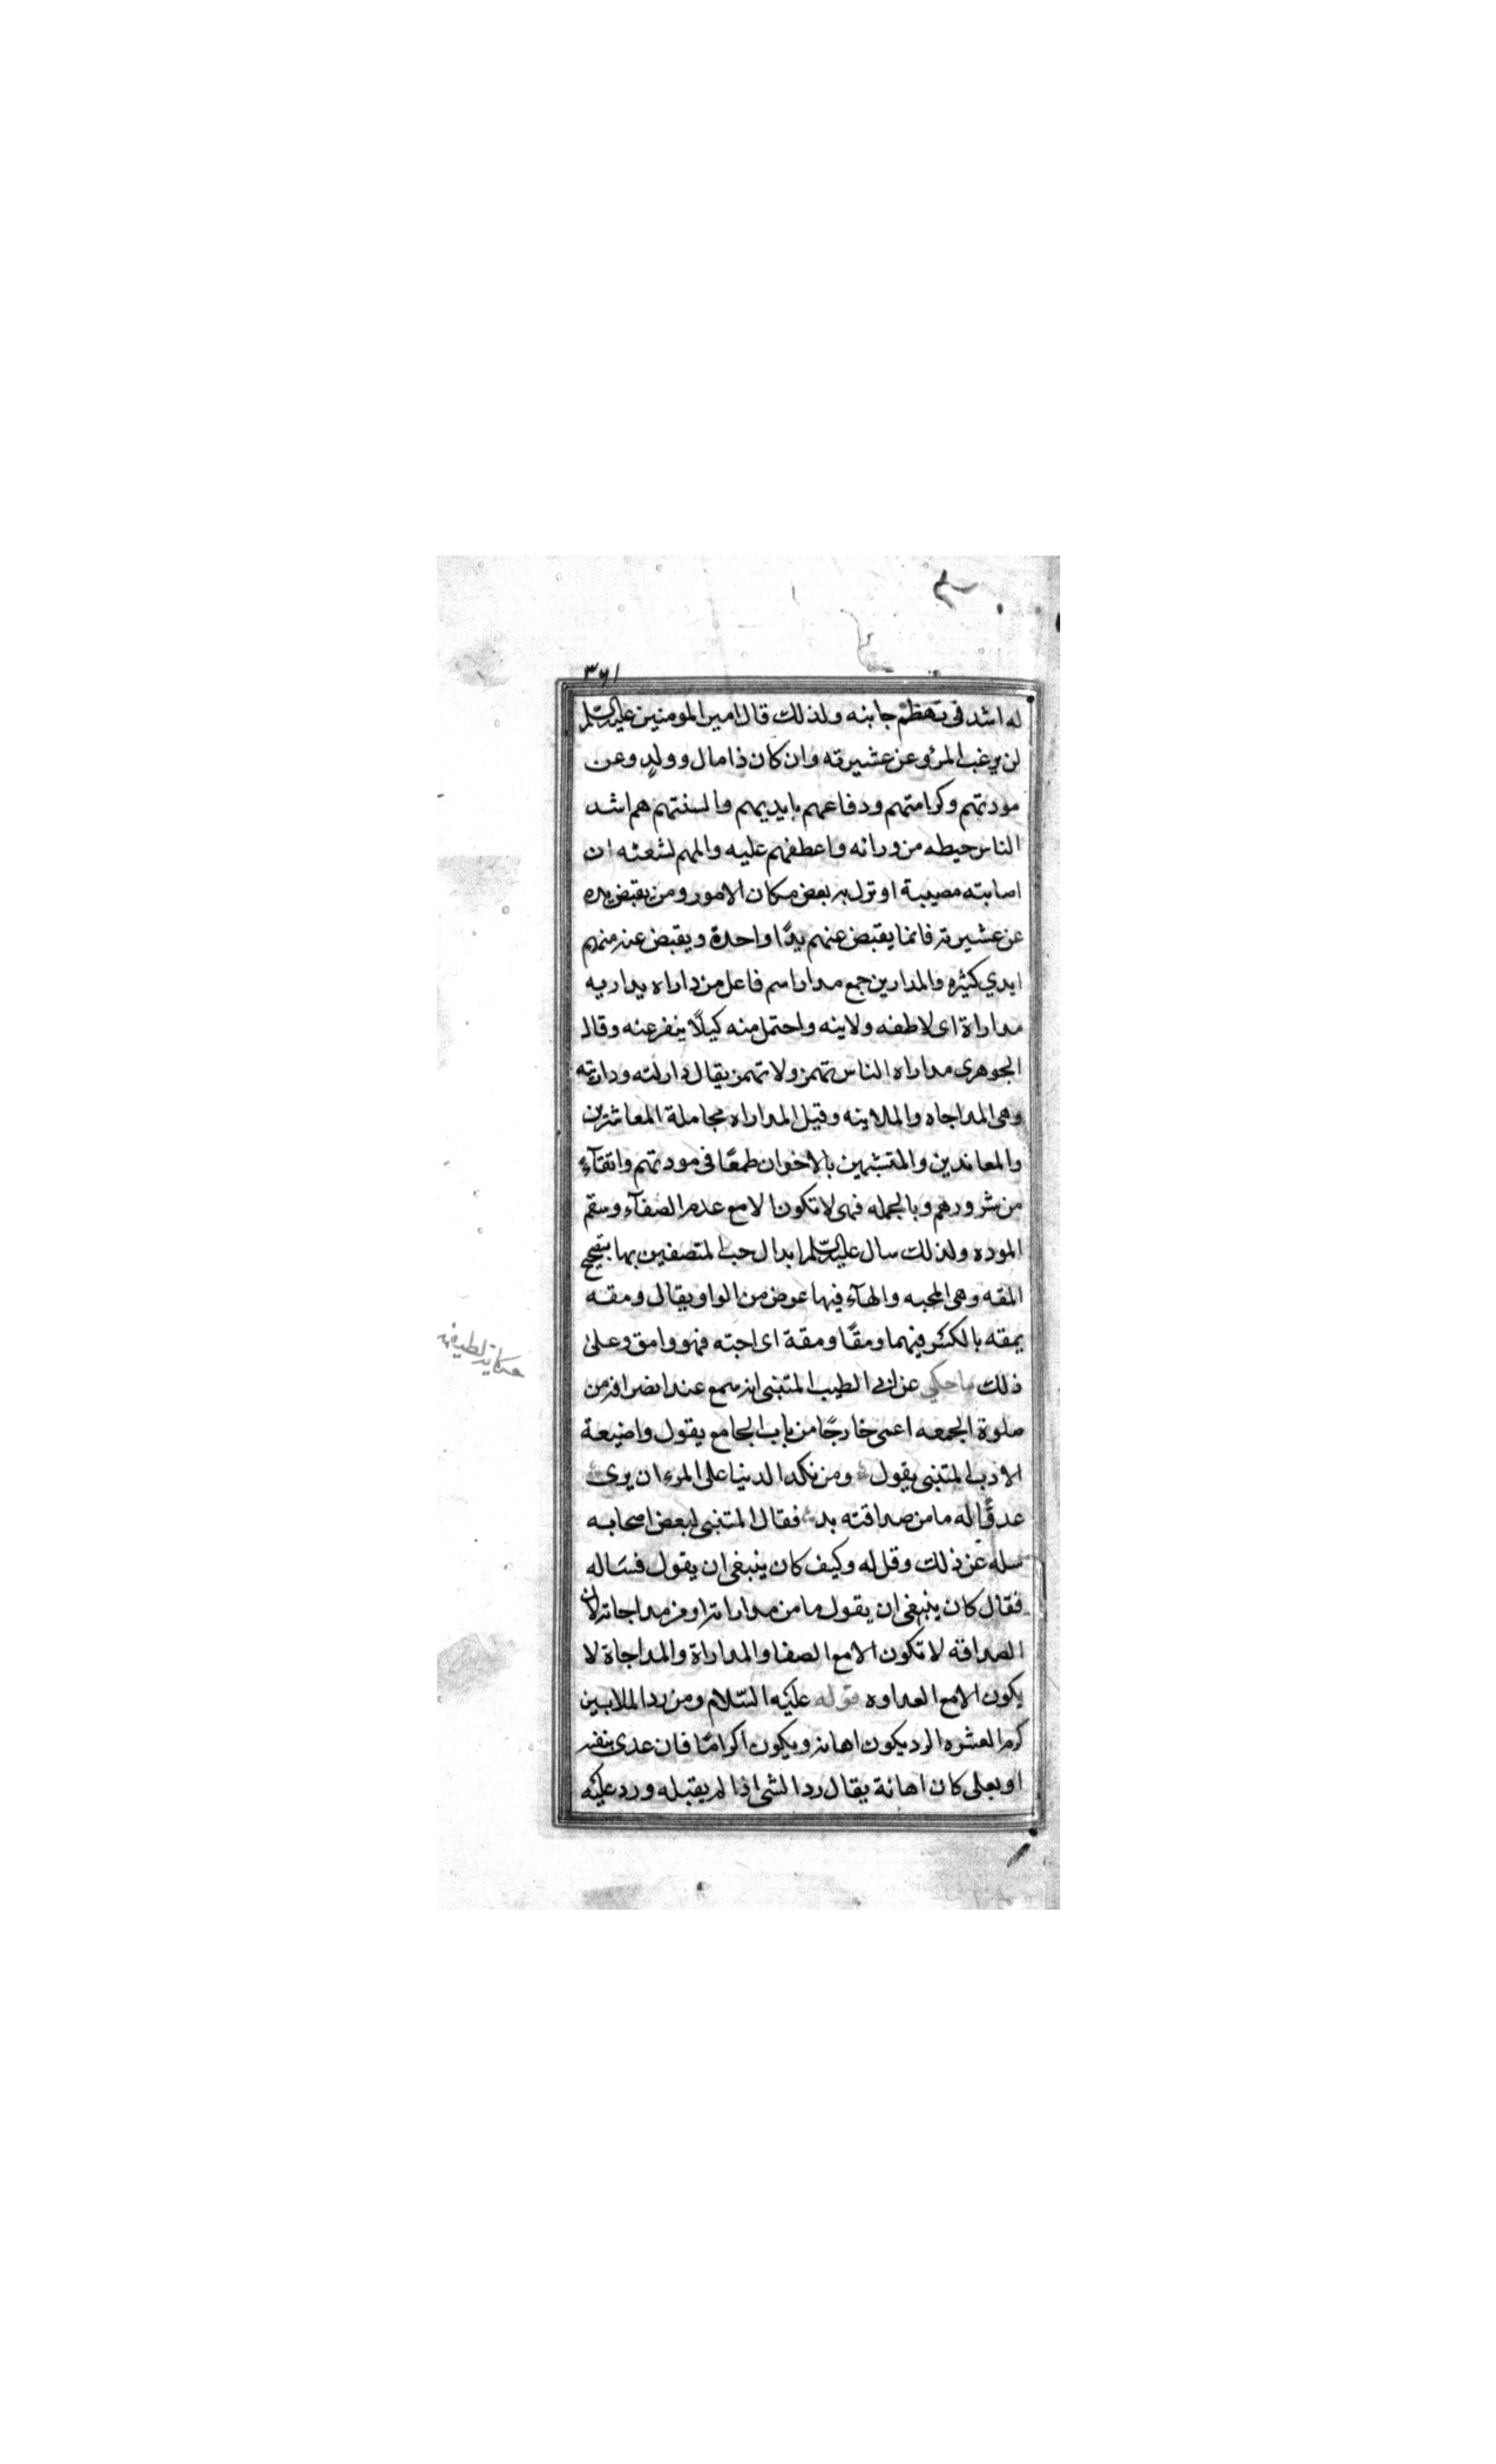 ٣٦١
له اشد فى تعظم جانبه ولذلك قال امير المومنين عليه السلم
لن يرغب المرؤ عن عشيرته وان كان ذا مال وولدٍ وعن
مودتهم وكرامتهم ودفاعهم بايديهم والسنتهم هم اشد
الناس حيطه من ورائه واعطفهم عليه والمهم لشعثه ان
اصابته مصيبة او نزل به بعض مكان الامور ومن يقبض يده
عن عشيرته فانما يقبض عنهم يدًا واحدة ويقبض عنه منهم
ايدي كثيره والمدارين جمع مدار اسم فاعل من داراه يداريه
مداراة اى لاطفه ولاينه واحتمل منه كيلًا ينفر عنه وقال
الجوهرى مداراه الناس تهمز ولا تهمز يقال دارأته وداريته
وهى المداجاه والملاينه وقيل المداراه مجاملة المعاشرين
والمعاندين والمتشبهين بالاخوان طمعًا فى مودتهم واتقآء
من شرورهم وبالجمله فهى لا تكون الا مع عدم الصفآء وسقم
الموده ولذلك سال عليه السلم ابدال حب المتصفين بها بتصحيح
المقه وهى المحبه والهآء فيها عوض من الواو يقال ومقه
يمقه بالكسر فيهما ومقًا ومقة اى احبه فهو وامق وعلى
ذلك ما حكي عن ابى الطيب المتنبى انه سمع عند انصرافه من
صلوة الجمعه اعمى خارجًا من باب الجامع يقول واضيعة
الادب المتنبى يقول ومن نكد الدنيا على المرء ان يرى
عدوًّا له ما من صداقته بد فقال المتنبى لبعض اصحابه
سله عن ذلك وقل له وكيف كان ينبغى ان يقول فسَاله
فقال كان ينبغى ان يقول ما من مداراته او من مداجاته لان
الصداقه لا تكون الا مع الصفا والمداراة والمداجاة لا
يكون الا مع العداوه قوله عليه السّلام ومن رد الملابسين
كرم العشره الرد يكون اهانه ويكون اكرامًا فان عدى بنفسه
او بعلى كان اهانة يقال رد الشى اذا لم يقبله ورد عليه
حكاية لطيفة